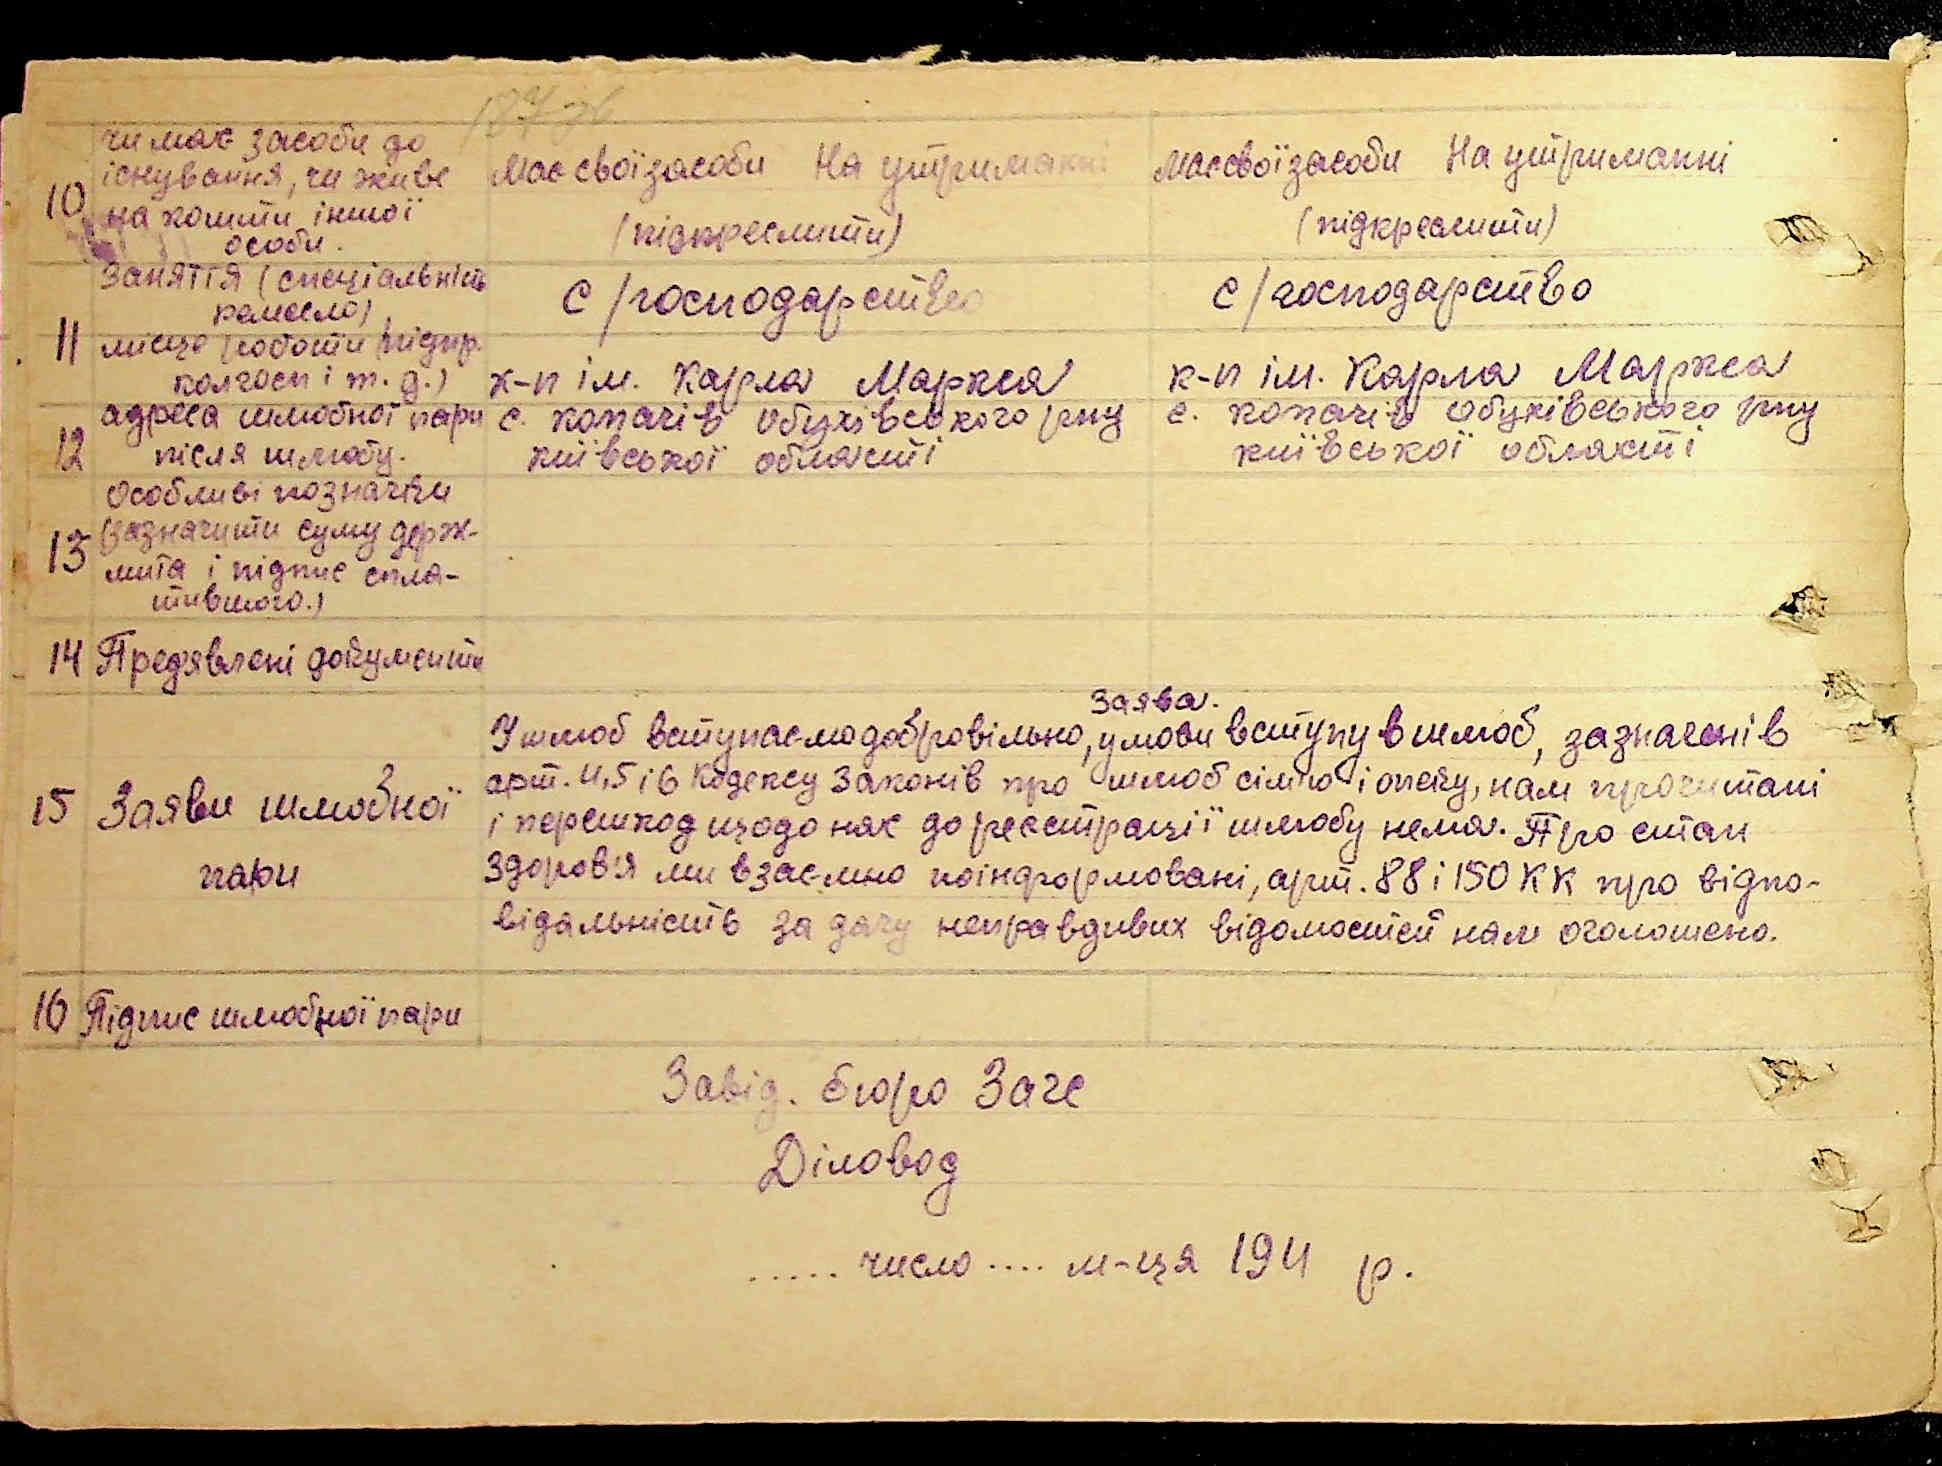 187 зв
10 чи має засоби до
існування, чи живе
на кошти іншої
особи.
Має свої засоби На утриманні
(підкреслити)
Має свої засоби На утриманні
(підкреслити)
11 Заняття (спеціальність
ремесло)
С/господарство
С/господарство
місце роботи (підпр.
колгосп і т. д.)
к-п ім. Карла Маркса
к-п ім. Карла Маркса
12 адреса шлюбної пари
після шлюбу.
с. Копачів Обухівського рну
київської области
с. Копачів Обухівського рну
київської области
13 Особливі позначки
(зазначити суму держ-
мита і підпис спла-
тившого.)
14 Предявлені документи
15 Заяви шлюбної
пари
Заява.
У шлюб вступаємо добровільно, умови вступу в шлюб, зазначені в
арт. 4,5 і 6 Кодексу Законів про шлюб сім'ю і опеку, нам прочитані
і перешкод щодо нас до реєстрації шлюбу нема. Про стан
здоров'я ми взаємно поінформовані, арт. 88 і 150 КК про відпо-
відальність за дачу неправдивих відомостей нам оголошено.
16 Підпис шлюбної пари
Завід. бюро Загс
Діловод
..... число .... м-ця 194 р.